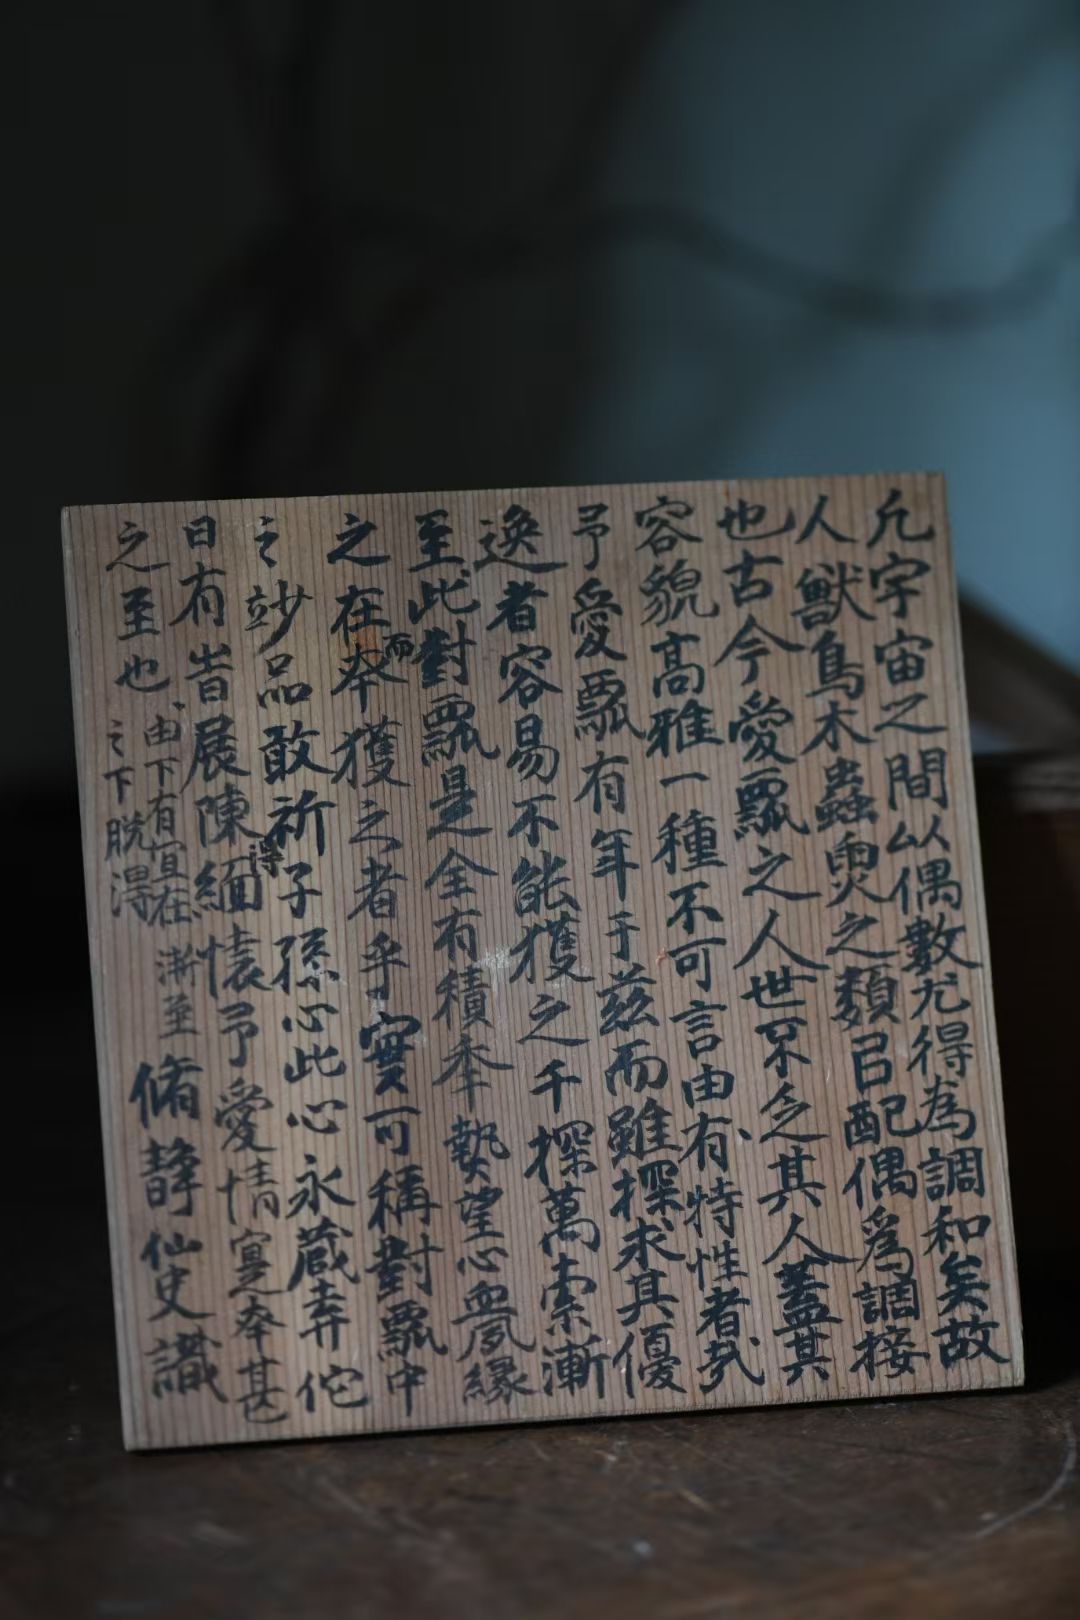 凡宇宙之間以偶數尤得為調和矣故
人獸鳥木蟲魚之類皆配偶為調接
也古今愛瓢之人世不乏其人蓋其
容貌高雅一種不可言由有特性者
予愛瓢有年于茲而雖探求其優
逸者容易不能獲之千探萬索漸
至此對瓢是全有積年執望心夢緣
之在而獲之者乎實可稱對瓢中
之妙品敢祈子孫心此心永藏弆佗
日有旹展陳緬懷得予愛情寔幸甚
之至也
由下有宜在漸至
之下脫得
脩靜仙史識